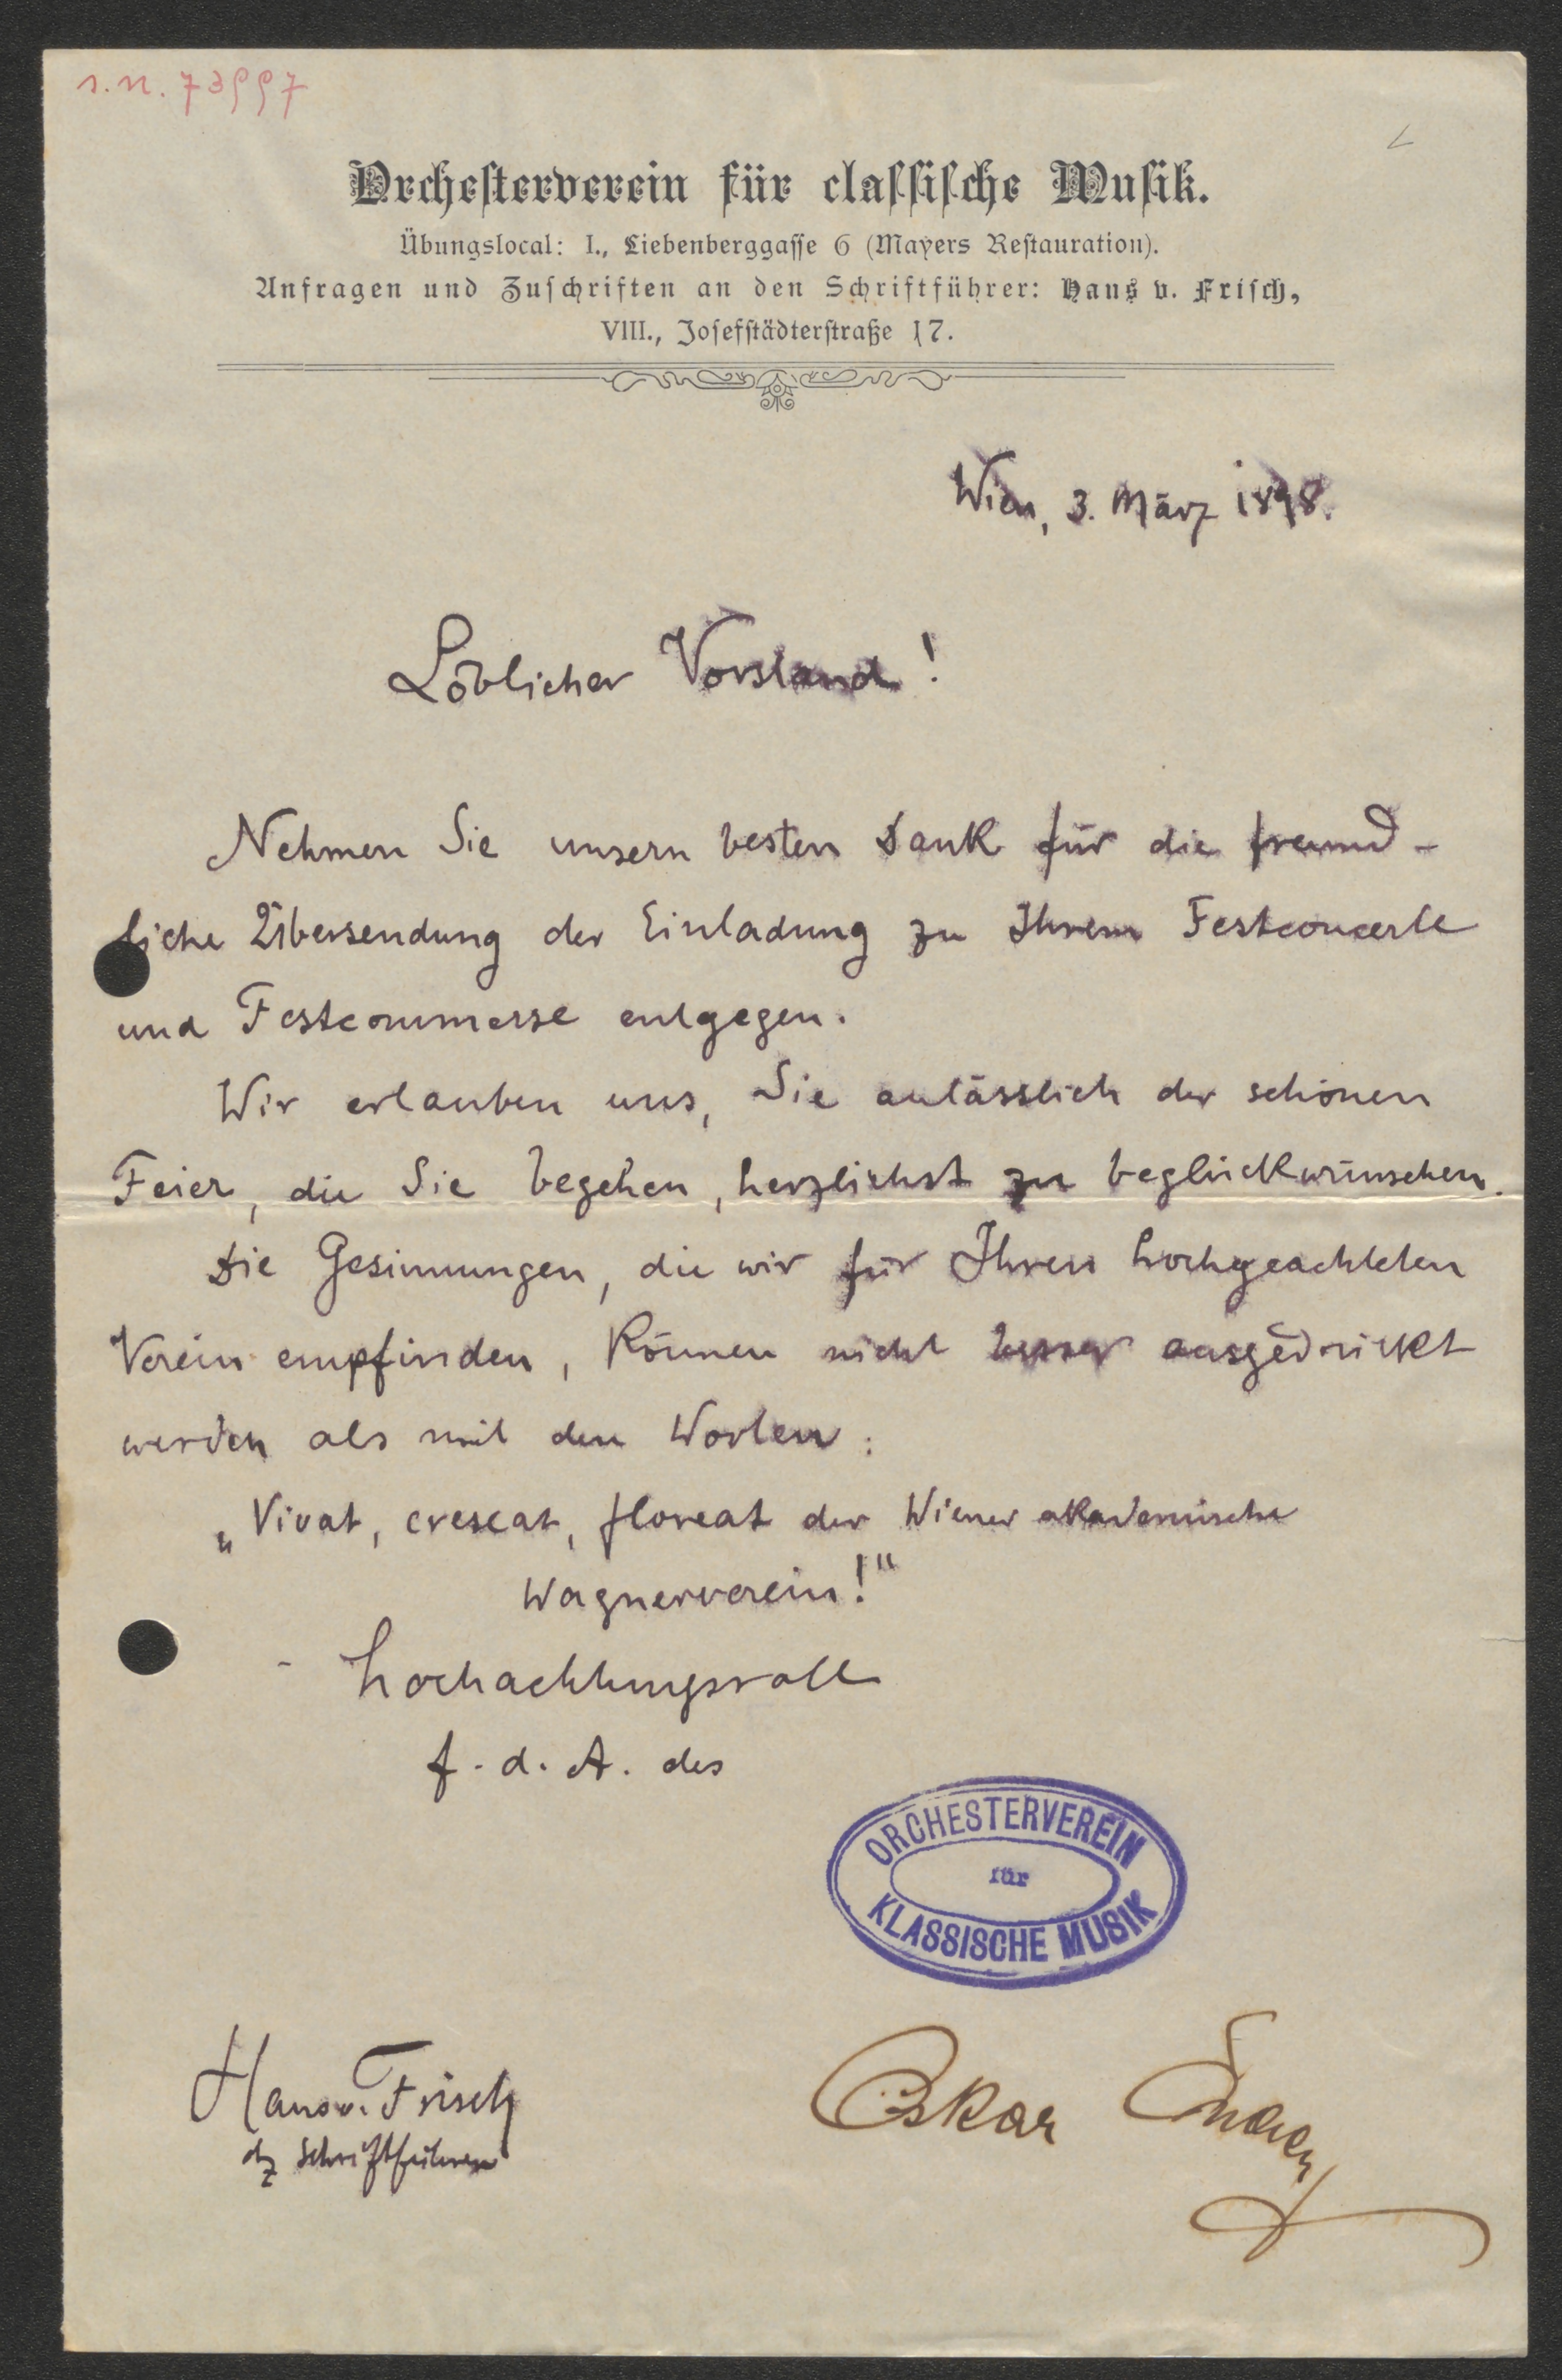 s. n. 73997
Orchesterverein für classische Musik.
Übungslocal: I., Liebenberggasse 6 (Mayers Restauration).
Anfragen und Zuschriften an den Schriftführer: Hans v. Frisch,
VIII., Josefstädterstraße 17.
Wien, 3. März 1898.
Löblicher Vorstand!
Nehmen Sie unsern besten Dank für die freund-
liche Übersendung der Einladung zu Ihrem Festconcerte
und Festcommerse entgegen.
Wir erlauben uns, Sie anlässlich der schönen
Feier, die Sie begehen, herzlichst zu beglückwünschen.
Die Gesinnungen, die wir für Ihren hochgeachteten
Verein empfinden, können nicht besser ausgedrückt
werden als mit den Worten:
„Vivat, crescat, floreat der Wiener akademische
Wagnerverein!“
Hochachtungsvoll
f. d. A. des
ORCHESTERVEREIN
für
KLASSISCHE MUSIK
Hans v. Frisch
dz Schriftführer
Oskar